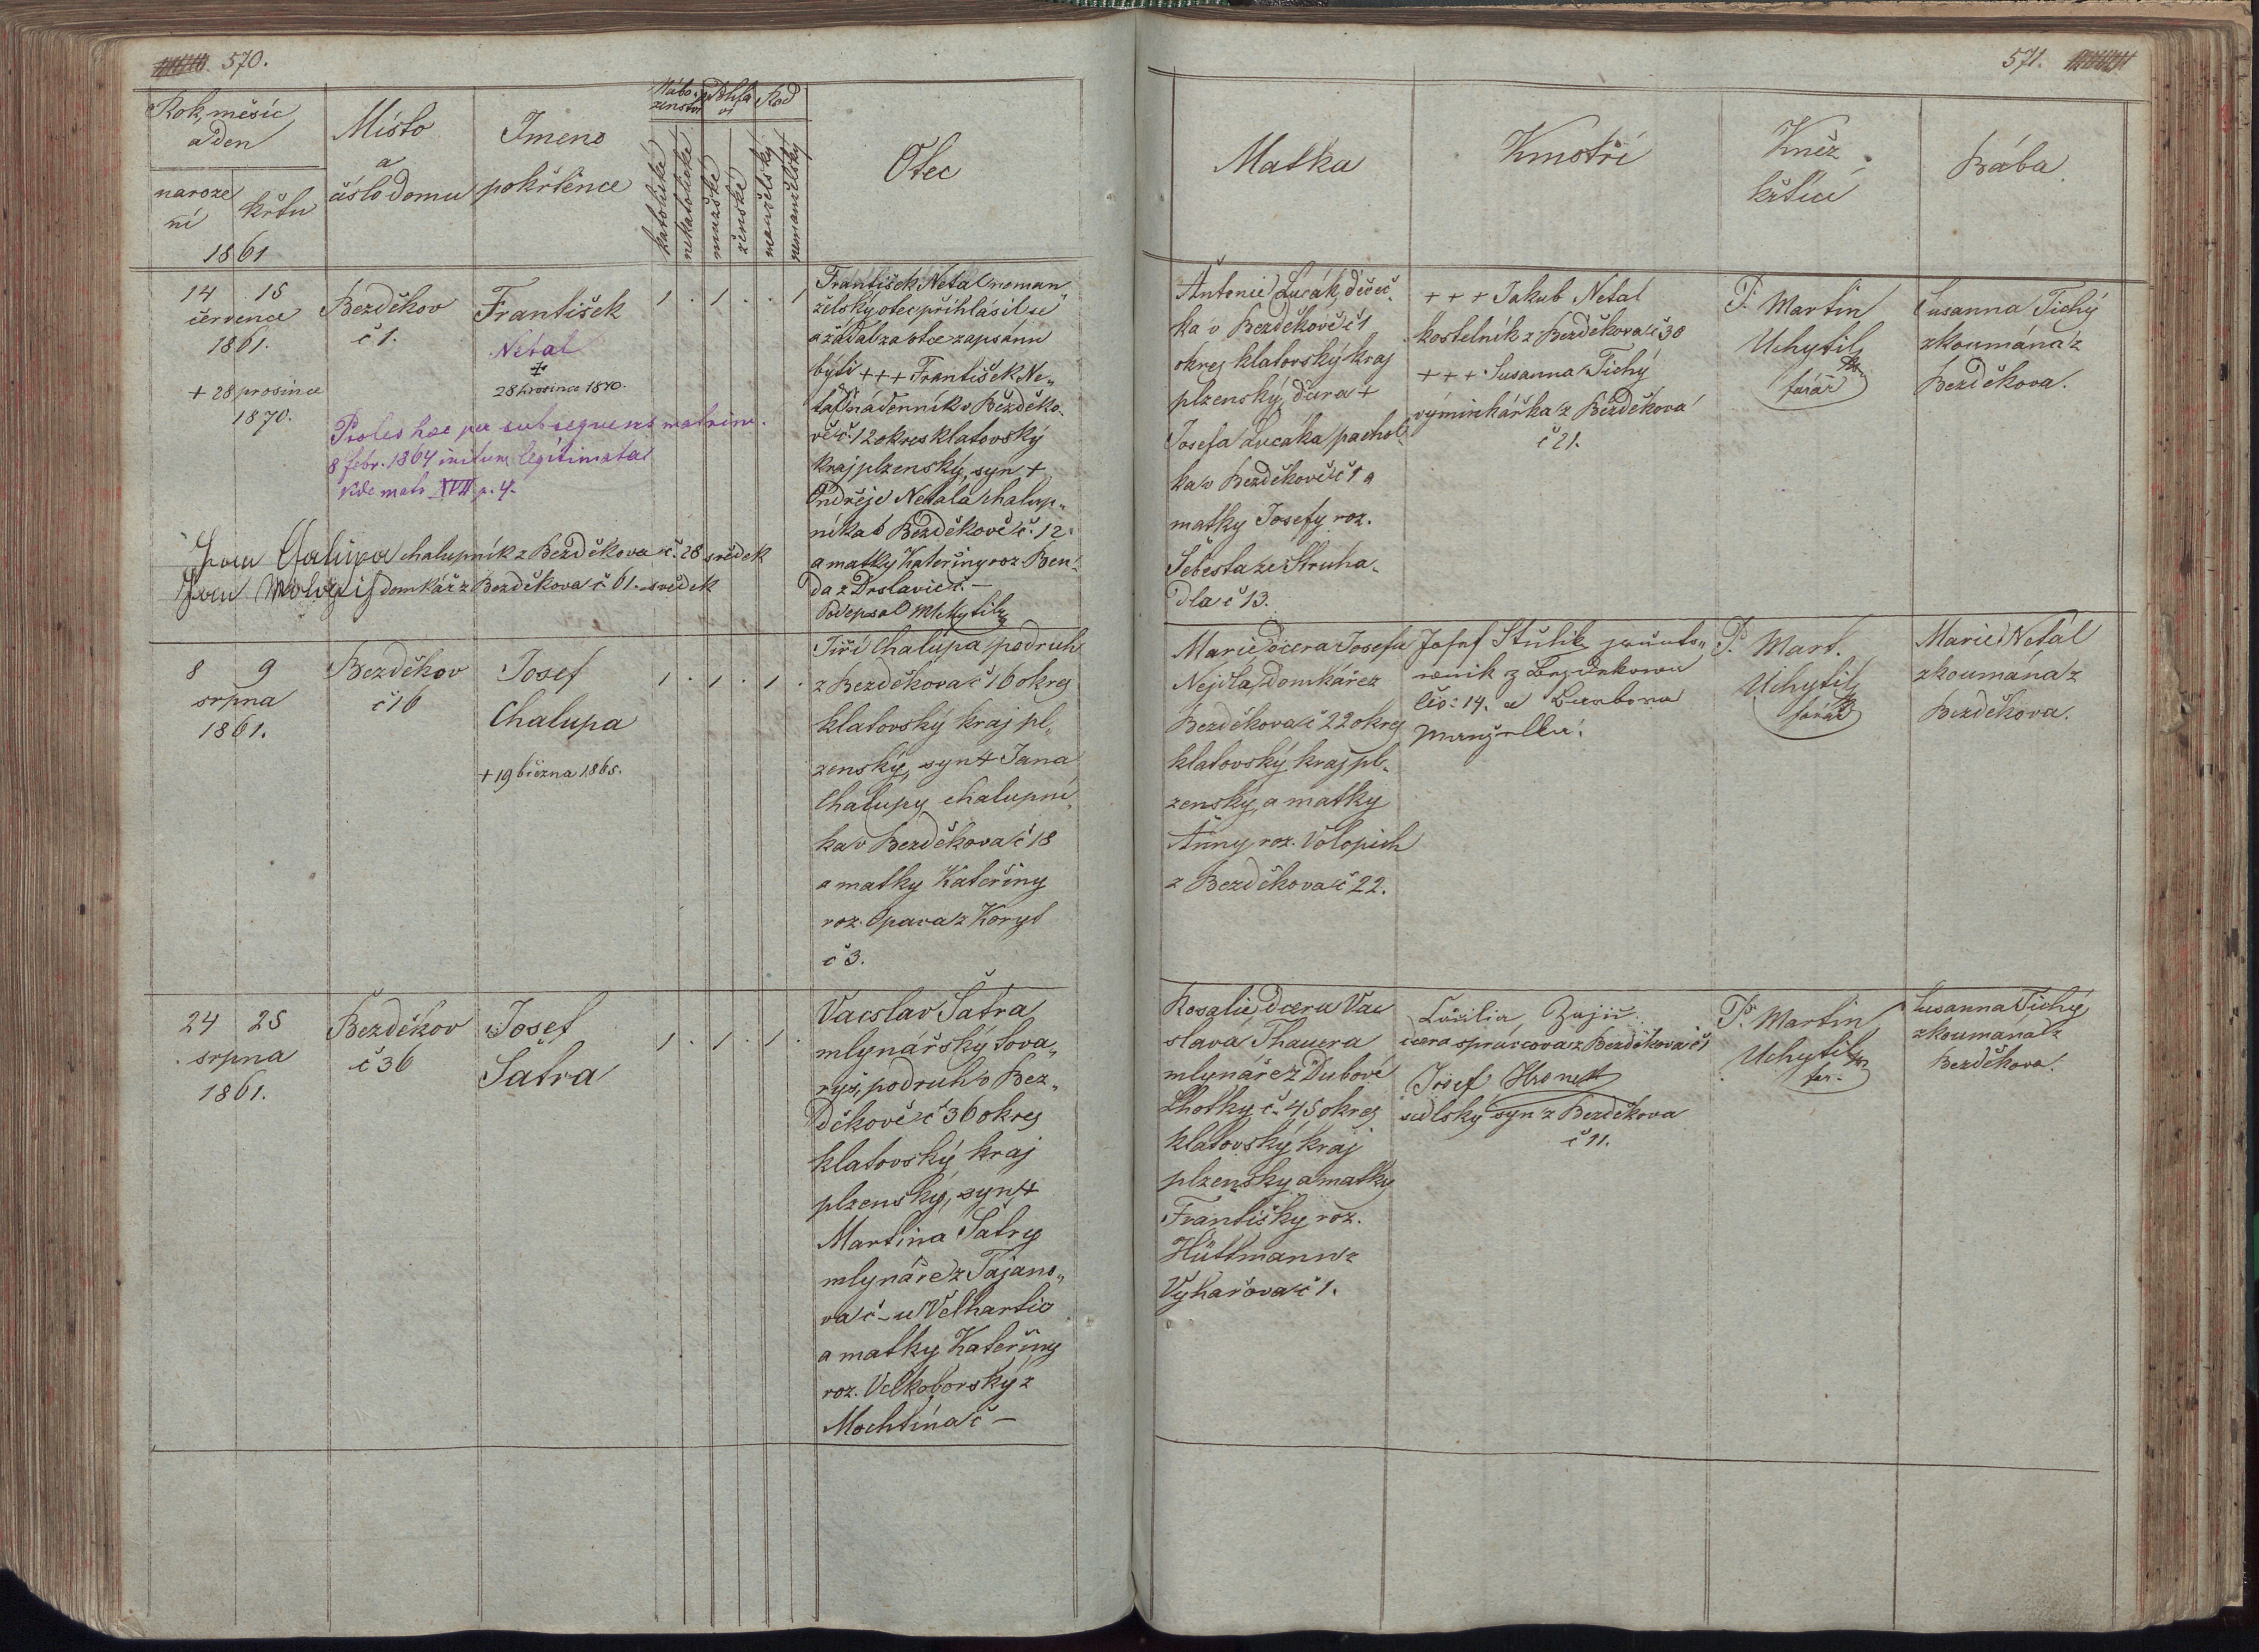 570.
Rok, měsíc
a den
naroze
ní
křtu
1861
Místo
a
číslo domu
Jmeno
pokřtěnce
Nábo-
ženství
Pohla
ví
Rod
katolické
nekatolické
mužské
ženské
manželský
nemanželský
Otec
14 15
července
1861.
+ 28 prosince
1870.
Bezděkov
č 1.
František
Netal
28 prosince 1870.
Proles haec per subsequens matrim.
8 febr. 1864 initum legitimata
Vide matr. XVII p. 4.
1 . 1 . . 1
František Netal neman
želský otec přihlásil se
a žádal za otce zapsánu
býti +++ František Ne„
tal nádenník v Bezděko-
vě č. 12 okres klatovský
kraj plzenský, syn +
Ondřeje Netala chalup„
níka v Bezděkově č. 12
a matky Kateřiny roz. Ben-
da z Drslavic č. —
Podepsal M Uchytil
Jan Chalupa chalupník z Bezděkova č. 28 svědek
Jan domkář z Bezděkova č 61. svědek
8 9
srpna
1861.
Bezděkov
č 16
Josef
Chalupa
+ 19 března 1865.
1 . 1 . 1 .
Jiří Chalupa podruh
z Bezděkova č 16 okres
klatovský kraj pl„
zenský, syn + Jana
Chalupy chalupní„
ka v Bezděkova č 18
a matky Kateřiny
roz. Opava z Koryt
č 3.
24 25
srpna
1861.
Bezděkov
č 36
Josef
Šatra
1 . 1 . 1 .
Vacslav Šatra
mlynářský tova„
ryš, podruh v Bez„
děkově č 36 okres
klatovský kraj
plzenský, syn +
Martina Šatry
mlynáře z Tajano„
va č – u Velhartic
a matky Kateřiny
roz. Velkoborský z
Mochtína č —
571.
Matka
Kmotři
Kněz
křtící
Bába
Antonie Lucák, děveč-
ka v Bezděkově č 1
okres klatovský kraj
plzenský, dcera +
Josefa Lucáka pachol-
ka v Bezděkově č 1 a
matky Josefy roz.
Šebesta ze Struha-
dla č 13.
+ + + Jakub Netal
kostelník z Bezděkova č 30
+ + + Susanna Tichý
výminkářka z Bezděkova
č 21.
P. Martin
Uchytil
farář
Susanna Tichý
zkoumána z
Bezděkova.
Marie dcera Josefa
Nejdla, domkáře z
Bezděkova č 22 okres
klatovský kraj pl-
zenský, a matky
Anny, roz. Volopich
z Bezděkova č 22.
Josef Štulik
z Bezděkowa
čis: 14. a Barbora
manželka.
P. Mart.
Uchytil
farář
Marie Netál
zkoumána z
Bezděkova.
Rosalie, dcera Vac
slava Thauera
mlynáře z Dubové
Lhotky č. 45 okres
klatovský kraj
plzenský a matky
Františky roz.
Hüttmann z
č 1.
dcera správcova z Bezděkova č 1
Josef
sedlský syn z Bezděkova
č 11.
P. Martin
Uchytil
far.
Susanna Tichý
zkoumaná z
Bezděkova.